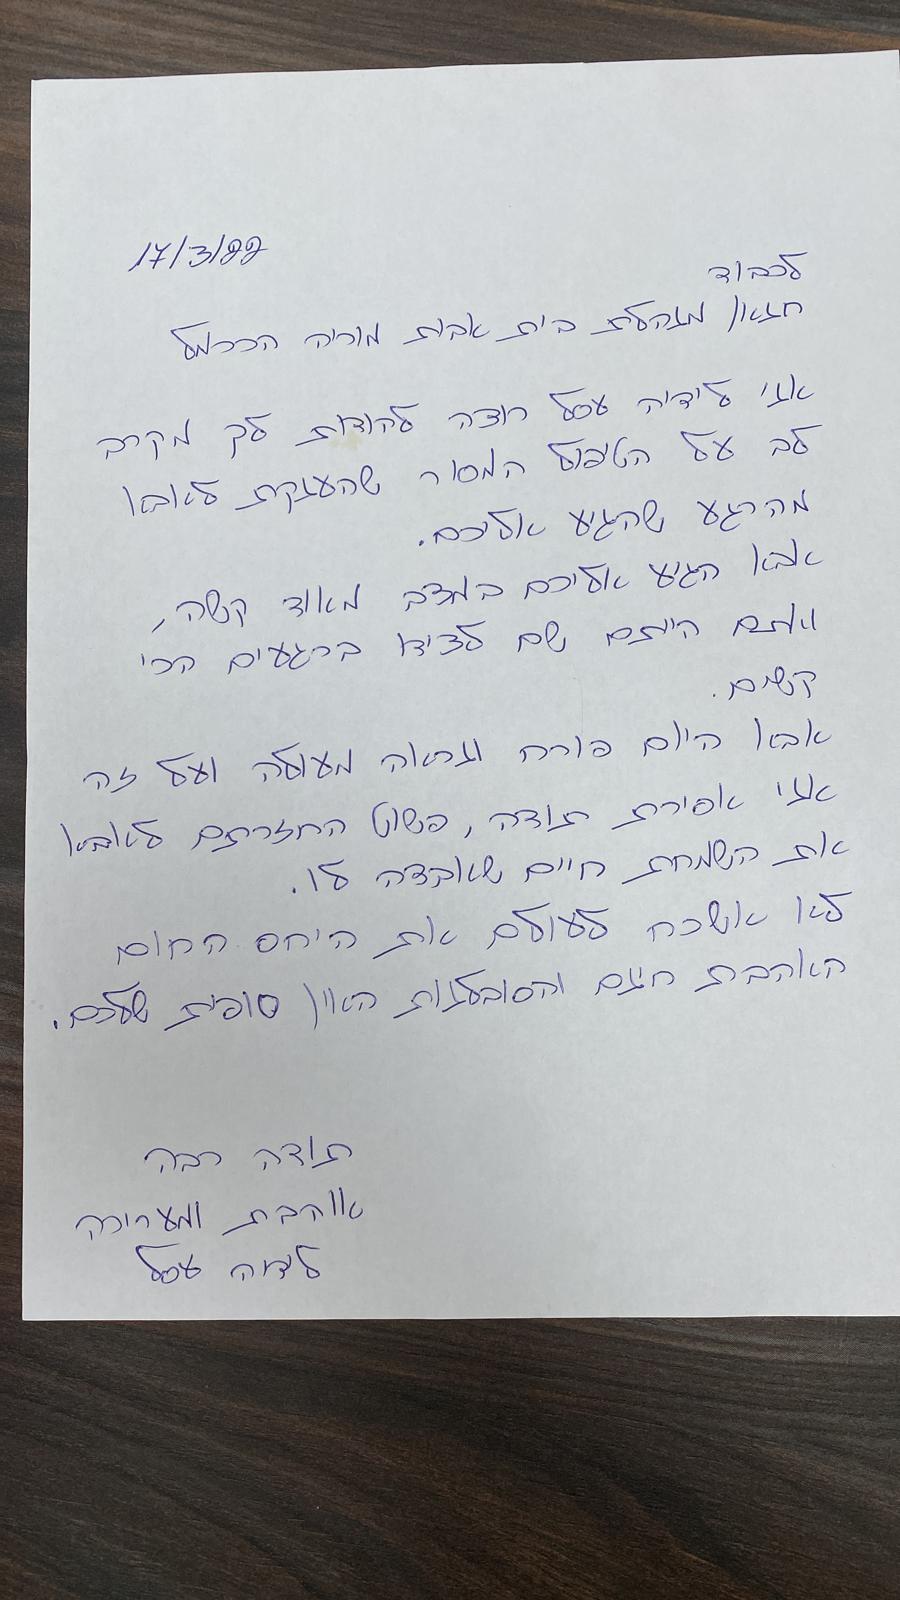 17/3/22
לכבוד
חגאון מנהלת בית אבות מוריה הכרמל
אני לידיה עסל רוצה להודות לך מקרב
לב על הטיפול המסור שהענקת לאבא
מהרגע שהגיע אליכם.
אבא הגיע אליכם במצב מאוד קשה,
ואתם הייתם שם לצידו ברגעים הכי
קשים.
אבא היום פורח ונראה מעולה ועל זה
אני אסירת תודה, פשוט החזרתם לאבא
את השמחת חיים שאבדה לו.
לא אשכח לעולם את היחס החום
האהבת חינם והסובלנות האין סופית שלכם.
תודה רבה
אוהבת ומעריכה
לידיה עסל